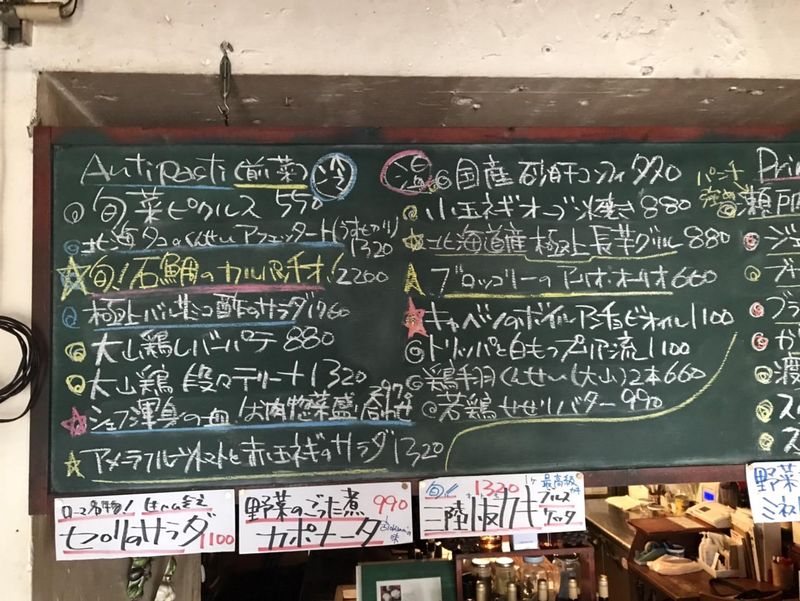 Antipasti (前菜) 冷
旬菜ピクルス 550
北海タコのくんせいアフェッタート(うすぎり) 1320
旬!石鯛のカルパッチオ! 2200
極上バルサミコ酢のサラダ 1760
大山鶏レバーパテ 880
大山鶏 段々テリーナ 1320
シェフ渾身の一皿!お肉惣菜盛り合わせ
アメーラフルーツトマトと赤玉ネギのサラダ 1320
温
国産砂肝コンフィ 990
小玉ネギオーブン焼き 880
北海道産極上長芋グリル 880
ブロッコリーのアーリオ・オーリオ 660
キャベツのボイルアンチョビオイル 1100
トリッパと白もつ 1100
鶏手羽くんせい(大山)2本 660
若鶏せせりバター 990
パンチ
Pri
瀬戸内
ローマ名物!
セロリのサラダ
1100
野菜のごった煮 990
カポナータ
旬! 1320
三陸
最高級
野菜
ミネス